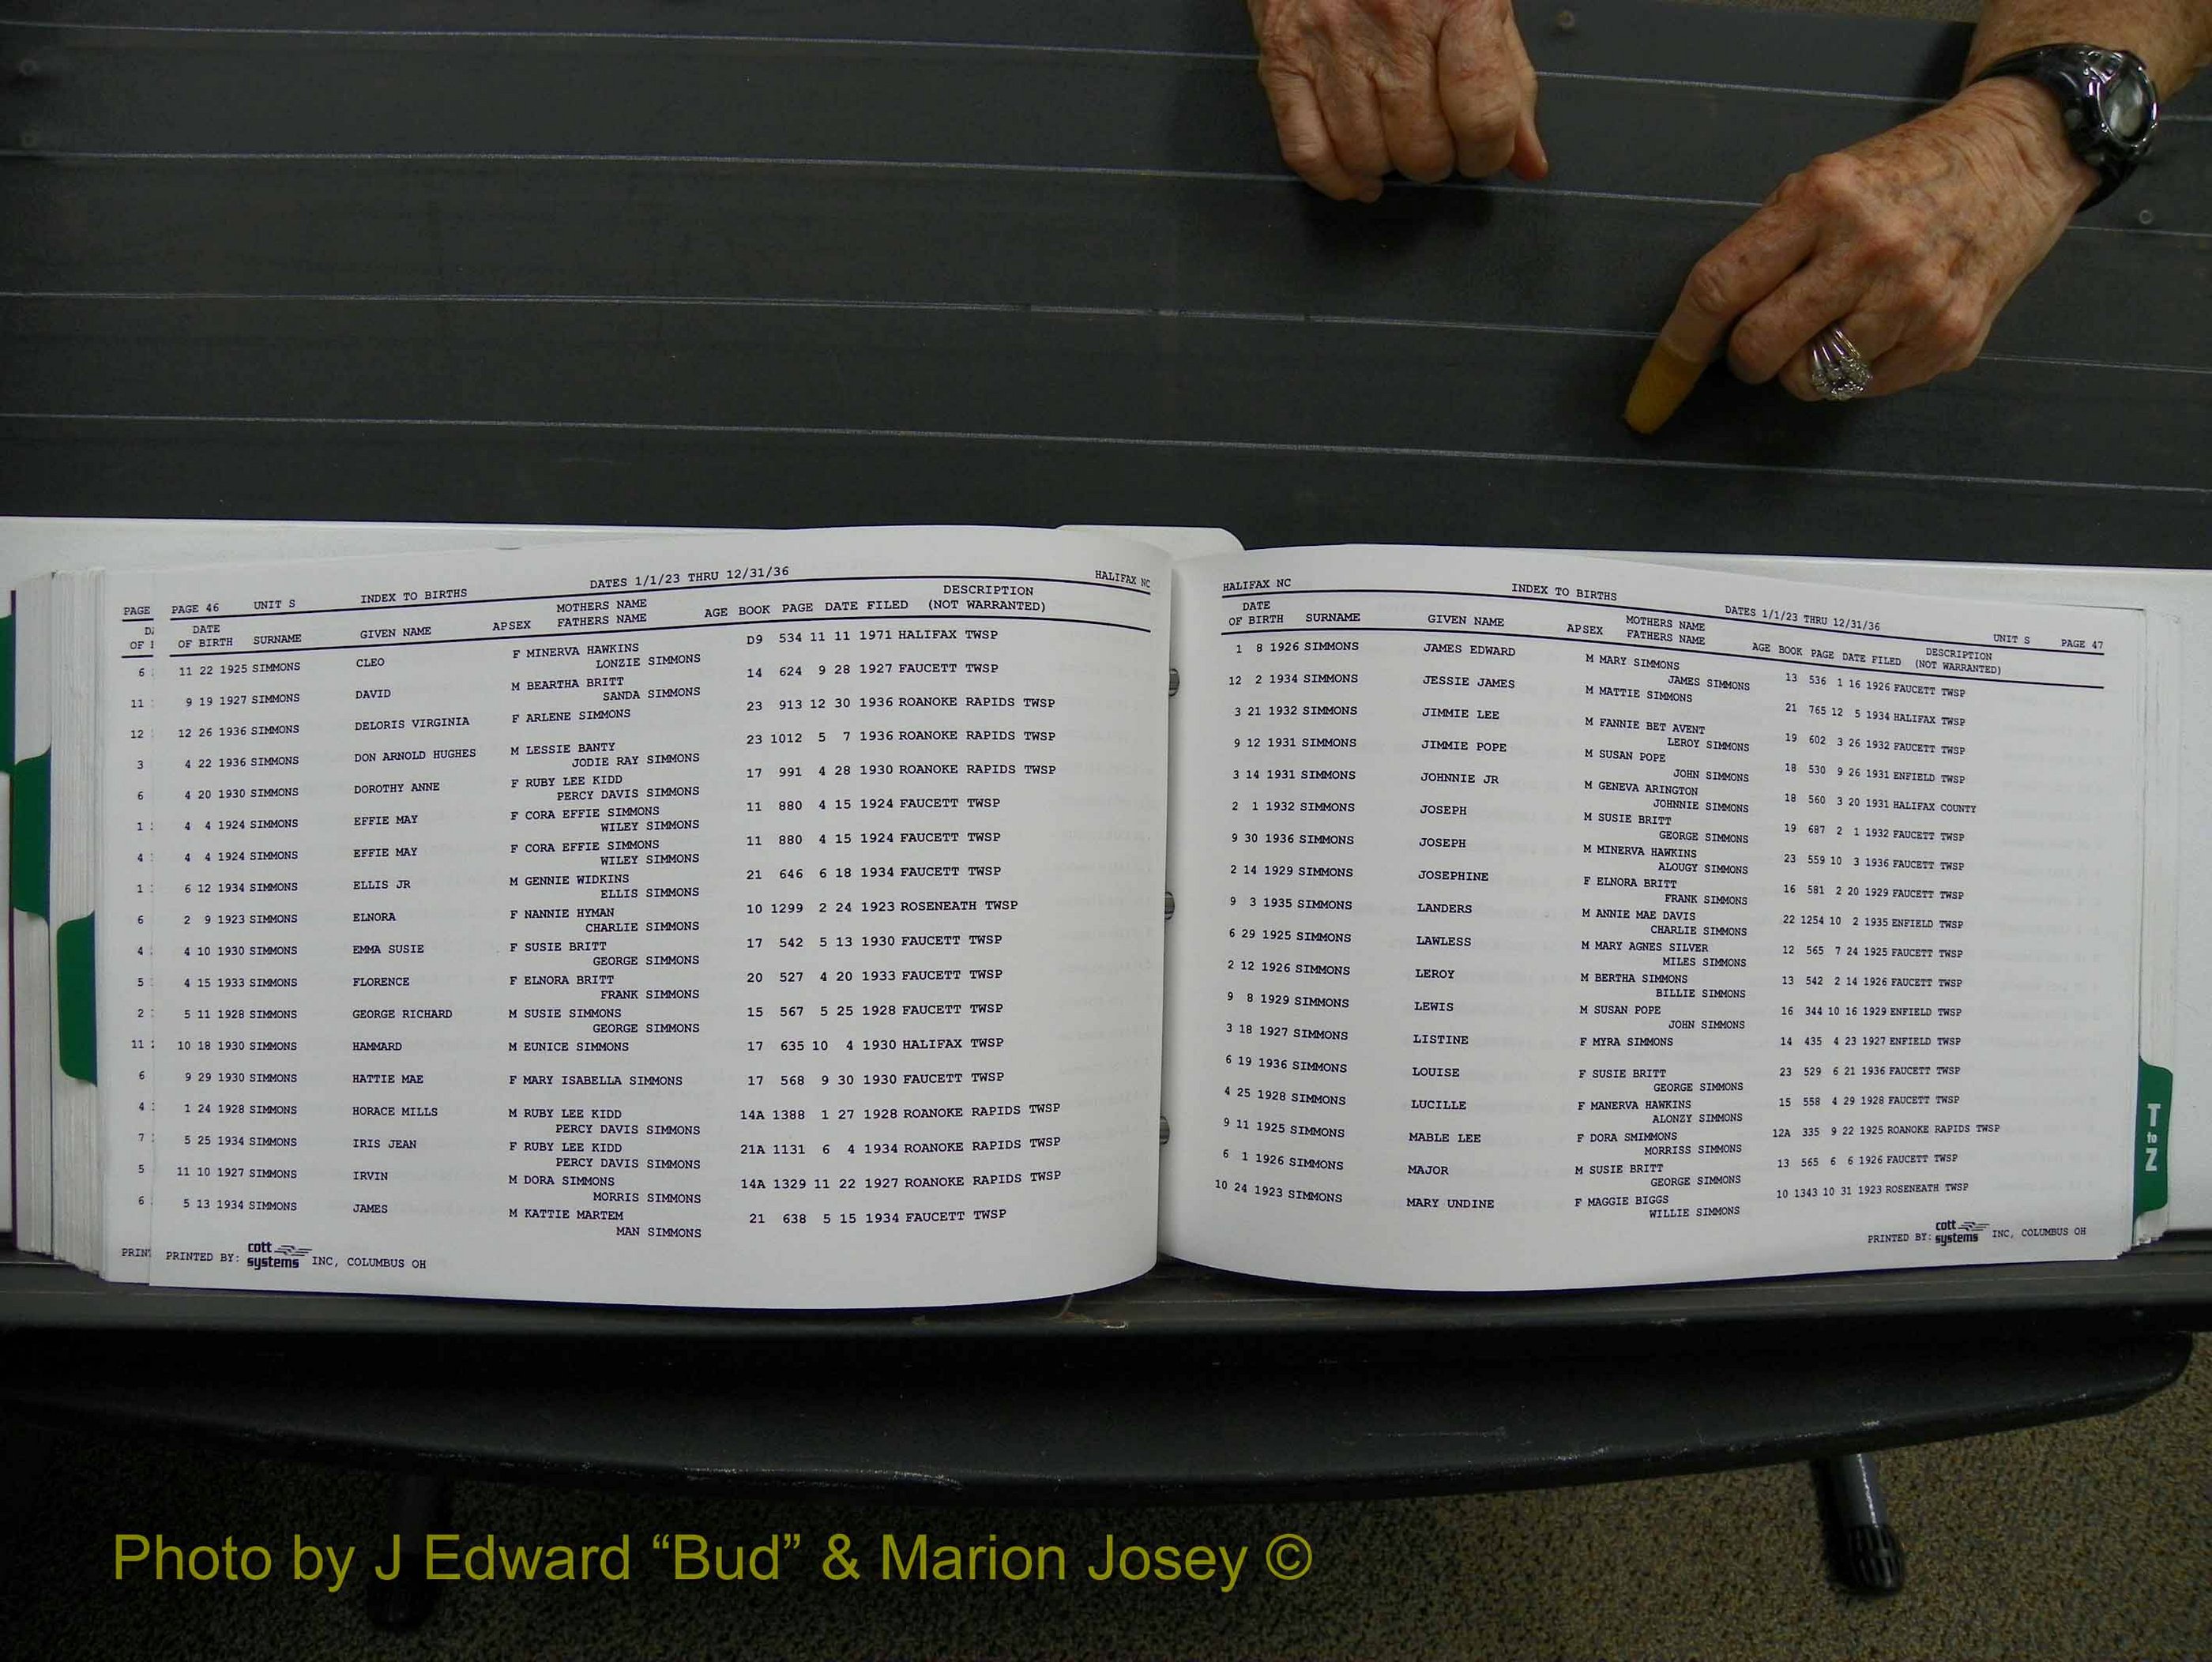 PAGE
D
OF 1
6
11
12
3
6
1
4
1
6
4
5
2
11
6
4
7
5
6
PRIN
PAGE 46 UNIT S INDEX TO BIRTHS DATES 1/1/23 THRU 12/31/36 HALIFAX NC
DATE MOTHERS NAME DESCRIPTION
OF BIRTH SURNAME GIVEN NAME APSEX FATHERS NAME AGE BOOK PAGE DATE FILED (NOT WARRANTED)
11 22 1925 SIMMONS CLEO F MINERVA HAWKINS D9 534 11 11 1971 HALIFAX TWSP
LONZIE SIMMONS
9 19 1927 SIMMONS DAVID M BEARTHA BRITT 14 624 9 28 1927 FAUCETT TWSP
SANDA SIMMONS
12 26 1936 SIMMONS DELORIS VIRGINIA F ARLENE SIMMONS 23 913 12 30 1936 ROANOKE RAPIDS TWSP
4 22 1936 SIMMONS DON ARNOLD HUGHES M LESSIE BANTY 23 1012 5 7 1936 ROANOKE RAPIDS TWSP
JODIE RAY SIMMONS
4 20 1930 SIMMONS DOROTHY ANNE F RUBY LEE KIDD 17 991 4 28 1930 ROANOKE RAPIDS TWSP
PERCY DAVIS SIMMONS
4 4 1924 SIMMONS EFFIE MAY F CORA EFFIE SIMMONS 11 880 4 15 1924 FAUCETT TWSP
WILEY SIMMONS
4 4 1924 SIMMONS EFFIE MAY F CORA EFFIE SIMMONS 11 880 4 15 1924 FAUCETT TWSP
WILEY SIMMONS
6 12 1934 SIMMONS ELLIS JR M GENNIE WIDKINS 21 646 6 18 1934 FAUCETT TWSP
ELLIS SIMMONS
2 9 1923 SIMMONS ELNORA F NANNIE HYMAN 10 1299 2 24 1923 ROSENEATH TWSP
CHARLIE SIMMONS
4 10 1930 SIMMONS EMMA SUSIE F SUSIE BRITT 17 542 5 13 1930 FAUCETT TWSP
GEORGE SIMMONS
4 15 1933 SIMMONS FLORENCE F ELNORA BRITT 20 527 4 20 1933 FAUCETT TWSP
FRANK SIMMONS
5 11 1928 SIMMONS GEORGE RICHARD M SUSIE SIMMONS 15 567 5 25 1928 FAUCETT TWSP
GEORGE SIMMONS
10 18 1930 SIMMONS HAMMARD M EUNICE SIMMONS 17 635 10 4 1930 HALIFAX TWSP
9 29 1930 SIMMONS HATTIE MAE F MARY ISABELLA SIMMONS 17 568 9 30 1930 FAUCETT TWSP
1 24 1928 SIMMONS HORACE MILLS M RUBY LEE KIDD 14A 1388 1 27 1928 ROANOKE RAPIDS TWSP
PERCY DAVIS SIMMONS
5 25 1934 SIMMONS IRIS JEAN F RUBY LEE KIDD 21A 1131 6 4 1934 ROANOKE RAPIDS TWSP
PERCY DAVIS SIMMONS
11 10 1927 SIMMONS IRVIN M DORA SIMMONS 14A 1329 11 22 1927 ROANOKE RAPIDS TWSP
MORRIS SIMMONS
5 13 1934 SIMMONS JAMES M KATTIE MARTEM 21 638 5 15 1934 FAUCETT TWSP
MAN SIMMONS
PRINTED BY: cott systems INC, COLUMBUS OH
HALIFAX NC INDEX TO BIRTHS DATES 1/1/23 THRU 12/31/36 UNIT S PAGE 47
DATE MOTHERS NAME DESCRIPTION
OF BIRTH SURNAME GIVEN NAME APSEX FATHERS NAME AGE BOOK PAGE DATE FILED (NOT WARRANTED)
1 8 1926 SIMMONS JAMES EDWARD M MARY SIMMONS 13 536 1 16 1926 FAUCETT TWSP
JAMES SIMMONS
12 2 1934 SIMMONS JESSIE JAMES M MATTIE SIMMONS 21 765 12 5 1934 HALIFAX TWSP
3 21 1932 SIMMONS JIMMIE LEE M FANNIE BET AVENT 19 602 3 26 1932 FAUCETT TWSP
LEROY SIMMONS
9 12 1931 SIMMONS JIMMIE POPE M SUSAN POPE 18 530 9 26 1931 ENFIELD TWSP
JOHN SIMMONS
3 14 1931 SIMMONS JOHNNIE JR M GENEVA ARINGTON 18 560 3 20 1931 HALIFAX COUNTY
JOHNNIE SIMMONS
2 1 1932 SIMMONS JOSEPH M SUSIE BRITT 19 687 2 1 1932 FAUCETT TWSP
GEORGE SIMMONS
9 30 1936 SIMMONS JOSEPH M MINERVA HAWKINS 23 559 10 3 1936 FAUCETT TWSP
ALOUGY SIMMONS
2 14 1929 SIMMONS JOSEPHINE F ELNORA BRITT 16 581 2 20 1929 FAUCETT TWSP
FRANK SIMMONS
9 3 1935 SIMMONS LANDERS M ANNIE MAE DAVIS 22 1254 10 2 1935 ENFIELD TWSP
CHARLIE SIMMONS
6 29 1925 SIMMONS LAWLESS M MARY AGNES SILVER 12 565 7 24 1925 FAUCETT TWSP
MILES SIMMONS
2 12 1926 SIMMONS LEROY M BERTHA SIMMONS 13 542 2 14 1926 FAUCETT TWSP
BILLIE SIMMONS
9 8 1929 SIMMONS LEWIS M SUSAN POPE 16 344 10 16 1929 ENFIELD TWSP
JOHN SIMMONS
3 18 1927 SIMMONS LISTINE F MYRA SIMMONS 14 435 4 23 1927 ENFIELD TWSP
6 19 1936 SIMMONS LOUISE F SUSIE BRITT 23 529 6 21 1936 FAUCETT TWSP
GEORGE SIMMONS
4 25 1928 SIMMONS LUCILLE F MANERVA HAWKINS 15 558 4 29 1928 FAUCETT TWSP
ALONZY SIMMONS
9 11 1925 SIMMONS MABLE LEE F DORA SMIMMONS 12A 335 9 22 1925 ROANOKE RAPIDS TWSP
MORRISS SIMMONS
6 1 1926 SIMMONS MAJOR M SUSIE BRITT 13 565 6 6 1926 FAUCETT TWSP
GEORGE SIMMONS
10 24 1923 SIMMONS MARY UNDINE F MAGGIE BIGGS 10 1343 10 31 1923 ROSENEATH TWSP
WILLIE SIMMONS
PRINTED BY: cott systems INC, COLUMBUS OH
T to Z
Photo by J Edward “Bud” & Marion Josey ©